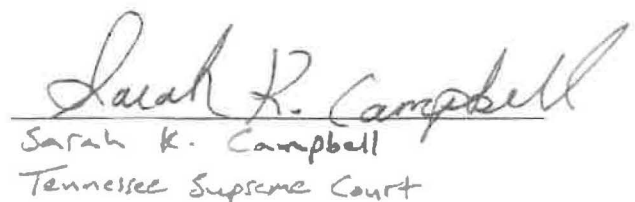 Sarah K. Campbell
Sarah K. Campbell
Tennessee Supreme Court